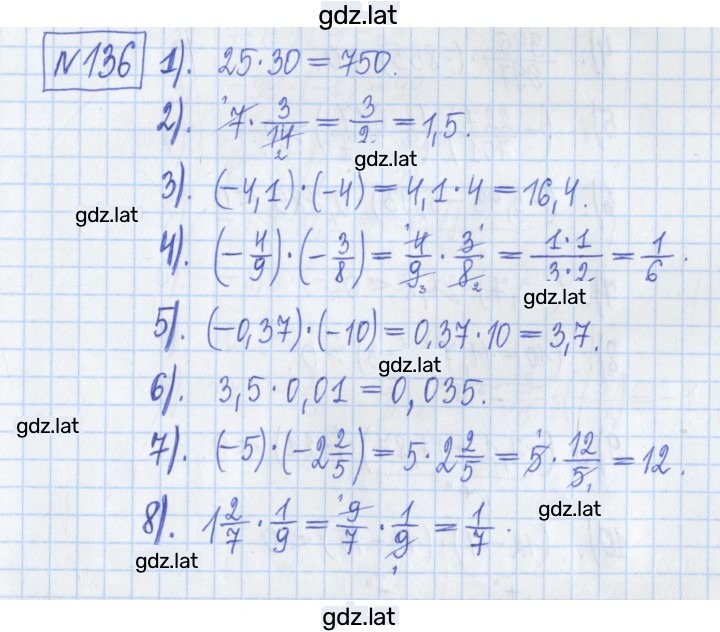 gdz.lat
№136 1). 25·30 = 750.
2). 7· 3/14 = 3/2 = 1,5.
gdz.lat
3). (−4,1)·(−4) = 4,1·4 = 16,4.
gdz.lat
4). (−4/9)·(−3/8) = 4/9 · 3/8 = 1·1/3·2 = 1/6.
gdz.lat
5). (−0,37)·(−10) = 0,37·10 = 3,7.
gdz.lat
6). 3,5·0,01 = 0,035.
gdz.lat
7). (−5)·(−2 2/5) = 5·2 2/5 = 5· 12/5 = 12.
gdz.lat
8). 1 2/7 · 1/9 = 9/7 · 1/9 = 1/7.
gdz.lat
gdz.lat